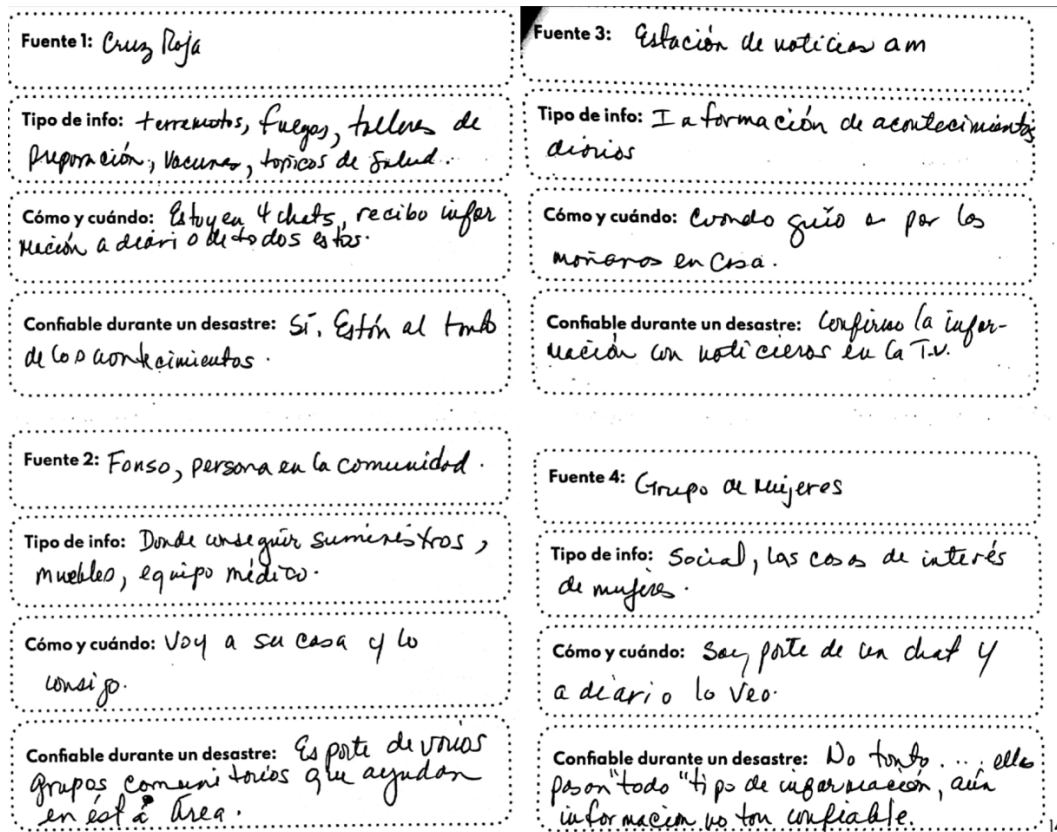 Fuente 1: Cruz Roja
Tipo de info: terremotos, fuegos, talleres de
preporación, vacunas, topicos de salud.
Cómo y cuándo: Estoy en 4 chats, recibo infor
mación a diario de todos estos.
Confiable durante un desastre: Sí. Están al tanto
de los acontecimientos.
Fuente 2: Fonso, persona en la comunidad.
Tipo de info: Donde conseguir suministros,
muebles, equipo médico.
Cómo y cuándo: Voy a su casa y lo
consigo.
Confiable durante un desastre: Es parte de varios
grupos comunitarios que ayudan
en ésta área.
Fuente 3: Estación de noticias am
Tipo de info: Información de acontecimientos
diarios
Cómo y cuándo: Cuando guío o por las
mañanas en casa.
Confiable durante un desastre: Confirmo la infor-
mación con noticieros en la T.V.
Fuente 4: Grupo de Mujeres
Tipo de info: Social, las cosas de interés
de mujeres.
Cómo y cuándo: Soy parte de un chat y
a diario lo veo.
Confiable durante un desastre: No tanto.... ellas
pasan "todo" tipo de información, aún
informacion no tan confiable.